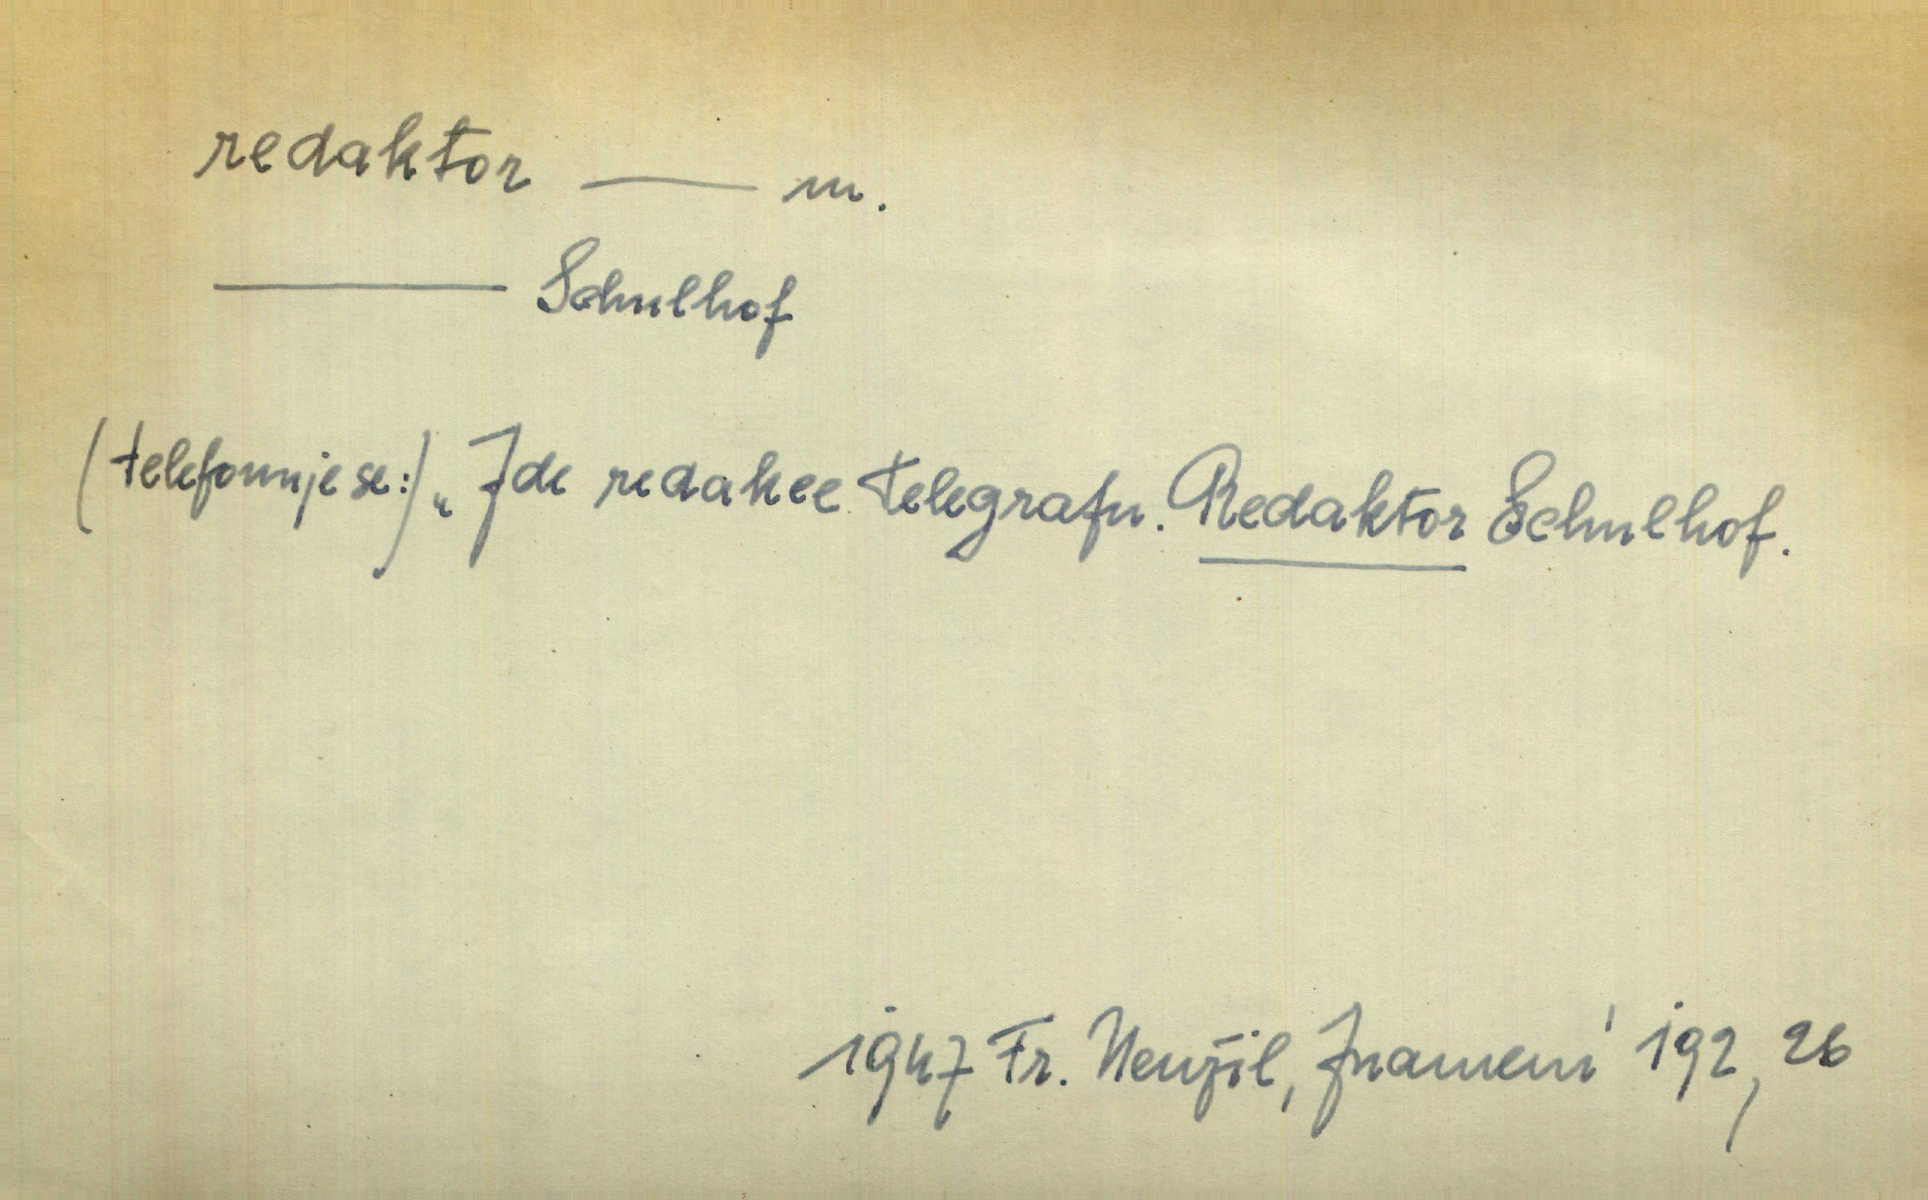 redaktor —— m.
———— Schulhof
(telefonuje se:) „Zde redakce Telegrafu. Redaktor Schulhof.
1947 Fr. Neužil, Znamení 192, 26